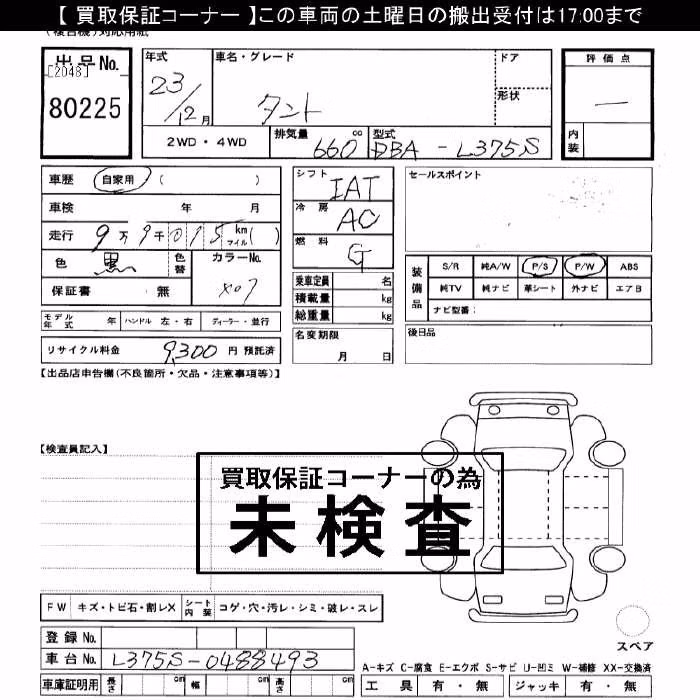 【 買取保証コーナー 】この車両の土曜日の搬出受付は17:00まで
(複合機)対応用紙
出品No. 年式 車名・グレード ドア 評価点
[2048]
80225 23/12月 タント 形状 —
内装
2WD・4WD 排気量 660 cc 型式 DBA - L375S
車歴 自家用 ( ) シフト IAT セールスポイント
車検 年 月 冷房 AC
走行 9万9千015 km マイル( ) 燃料 G
色 黒 色替 カラーNo. X07
装備品 S/R 純A/W P/S P/W ABS
保証書 ・ 無 乗車定員 名 純TV 純ナビ 革シート 外ナビ エアB
積載量 kg ナビ型番:
モデル年式 年 ハンドル 左・右 ディーラー・並行 総重量 kg
リサイクル料金 9,300 円 預託済 名変期限 月 日 後日品
【出品店申告欄(不良箇所・欠品・注意事項等)】
【検査員記入】
買取保証コーナーの為
未検査
FW キズ・トビ石・割レX シート内装 コゲ・穴・汚レ・シミ・破レ・スレ
登録No. スペア
車台No. L375S-0488493
A-キズ C-腐食 E-エクボ S-サビ U-凹ミ W-補修 XX-交換済
車庫証明用 長さ cm 幅 cm 高さ cm 工具 有・無 ジャッキ 有・無